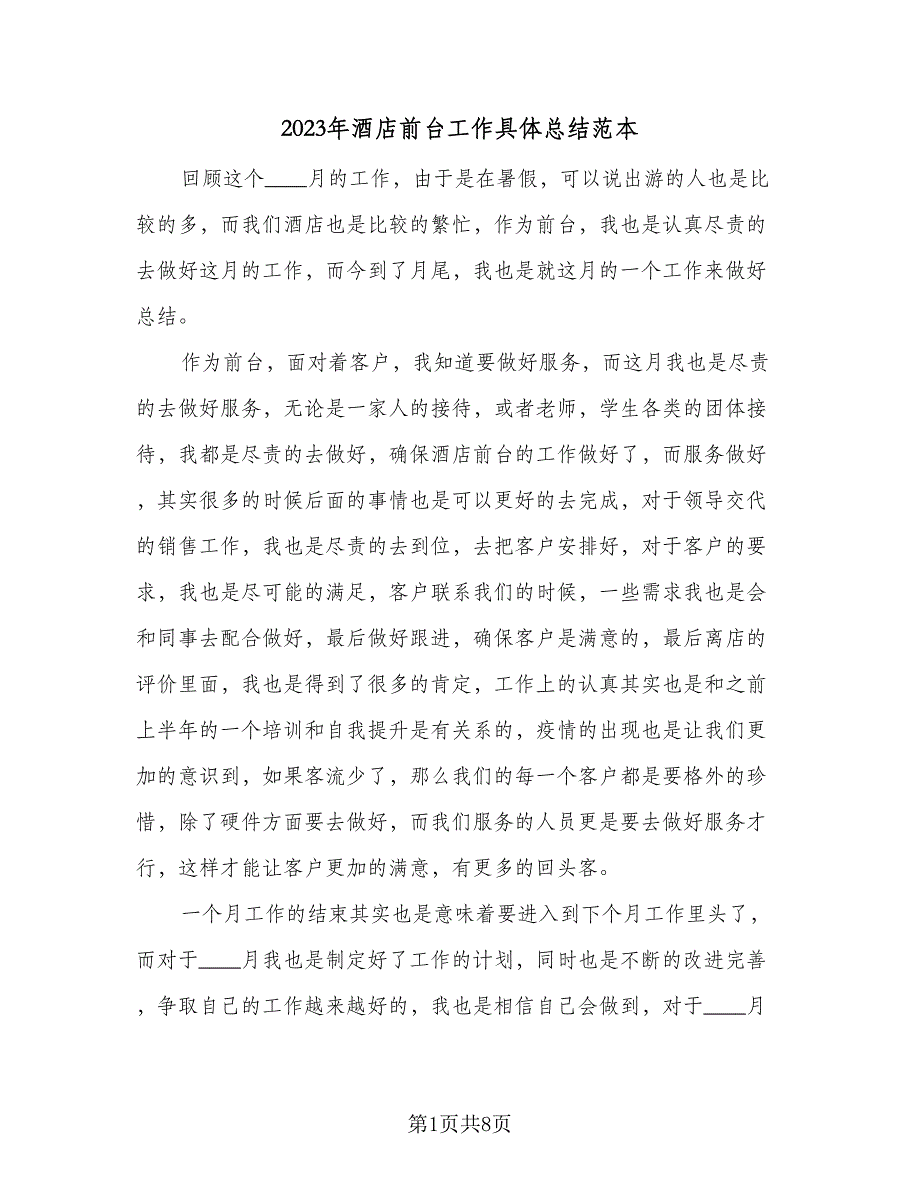 2023年酒店前台工作具体总结范本
回顾这个____月的工作，由于是在暑假，可以说出游的人也是比
较的多，而我们酒店也是比较的繁忙，作为前台，我也是认真尽责的
去做好这月的工作，而今到了月尾，我也是就这月的一个工作来做好
总结。
作为前台，面对着客户，我知道要做好服务，而这月我也是尽责
的去做好服务，无论是一家人的接待，或者老师，学生各类的团体接
待，我都是尽责的去做好，确保酒店前台的工作做好了，而服务做好
，其实很多的时候后面的事情也是可以更好的去完成，对于领导交代
的销售工作，我也是尽责的去到位，去把客户安排好，对于客户的要
求，我也是尽可能的满足，客户联系我们的时候，一些需求我也是会
和同事去配合做好，最后做好跟进，确保客户是满意的，最后离店的
评价里面，我也是得到了很多的肯定，工作上的认真其实也是和之前
上半年的一个培训和自我提升是有关系的，疫情的出现也是让我们更
加的意识到，如果客流少了，那么我们的每一个客户都是要格外的珍
惜，除了硬件方面要去做好，而我们服务的人员更是要去做好服务才
行，这样才能让客户更加的满意，有更多的回头客。
一个月工作的结束其实也是意味着要进入到下个月工作里头了，
而对于____月我也是制定好了工作的计划，同时也是不断的改进完善
，争取自己的工作越来越好的，我也是相信自己会做到，对于____月
第1页共8页